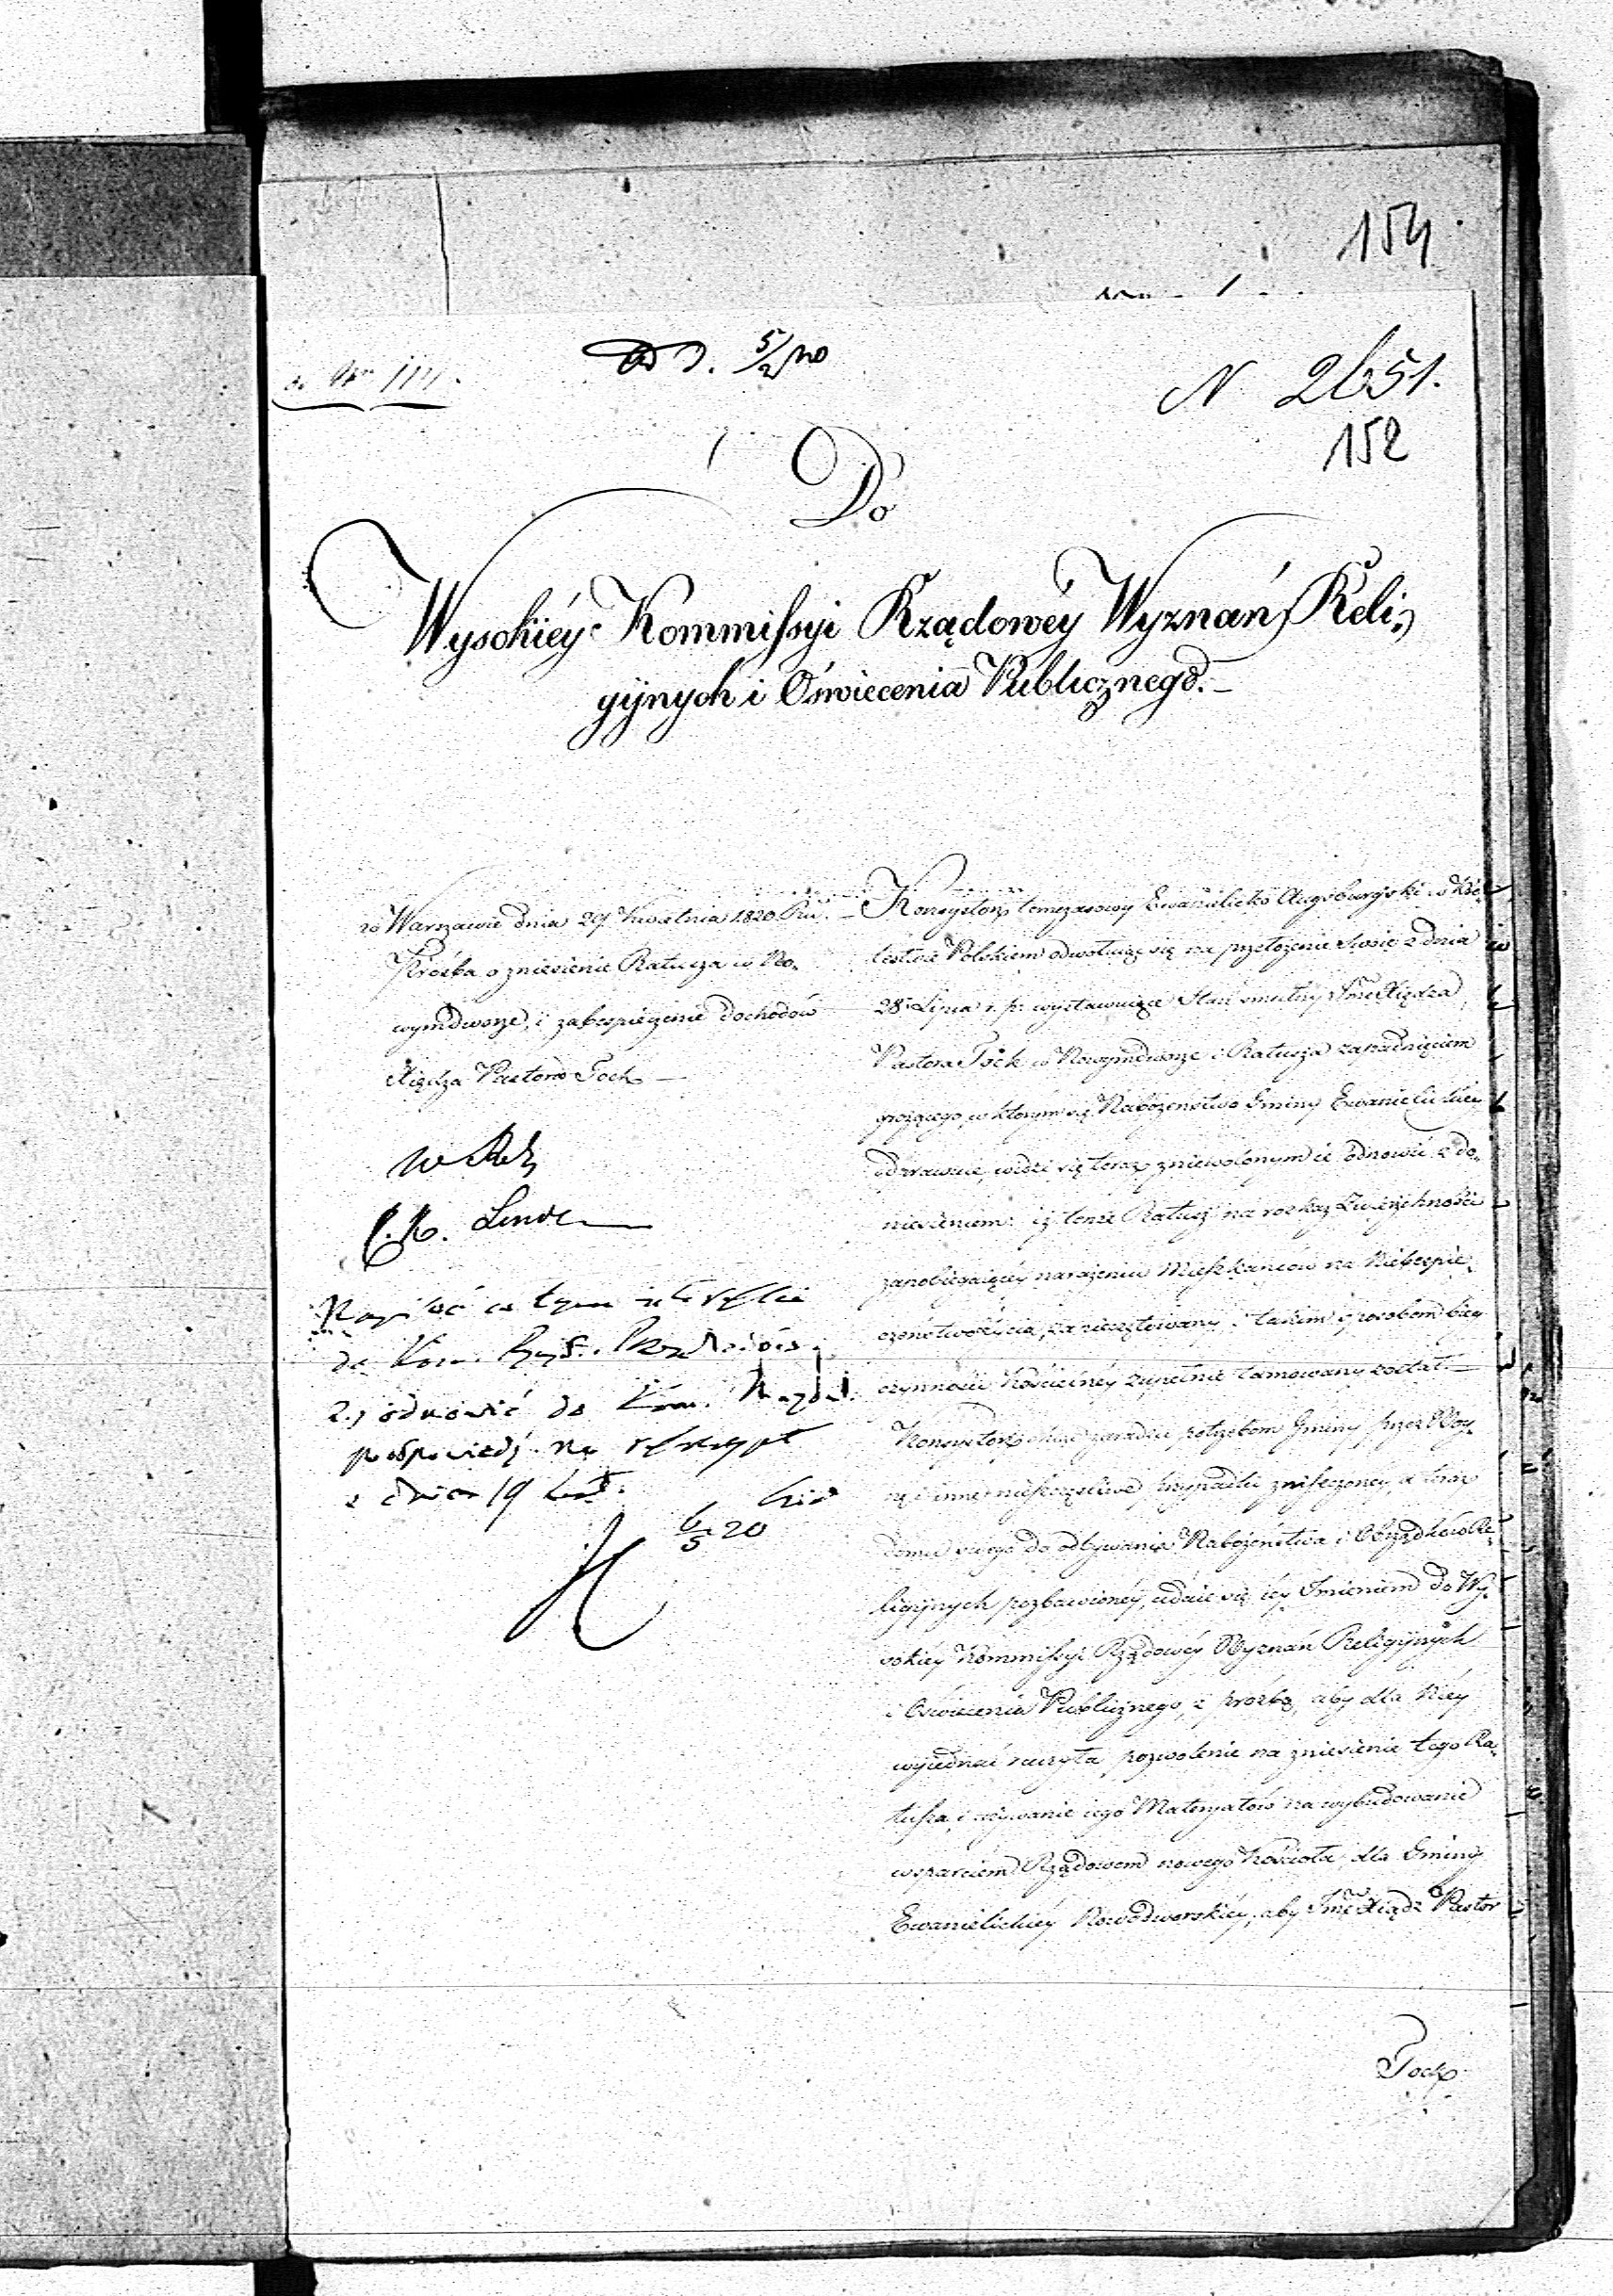 154
N 2651.
152
Do
Wysokiéy Kommissyi Rządowéy Wyznań Reli-
giynych i Oświecenia Publicznego.
w Warszawie dnia 29 Kwietnia 1820 Rü.
Prośba o zniesienie Ratusza w No-
wymdworze, i zabespieczenie dochodów
Xiędza Pastora Tock
C. R. Linde
Napisać w tym
do Kom.
2.) odnowić do Kom.
odpowiedź na reskrypt
z dnia 19
6/5 20
Konsystorz tymczasowy Ewanielicko Augsburgski w Kró-
lestwie Polskiem odwołuiąc się na przełożenie swoie z dnia
28 Lipca r. p. wystawuiące Stan smutny Jmć Xiędza
Pastora Tock w Nowymdworze i Ratusza zapadnięciem
grożącego, w którym się Nabożeństwo Gminy Ewanielickiey
odprawuie, widzi się teraz zniewolonym ie odnowić z do-
niesieniem: iż tenże Ratusz na rozkaz Zwierzchności
zapobiegaiącéy narażeniu Mieszkańców na Niebespie-
czeństwo życia, zapieczętowany i takim sposobem bieg
czynności Kościelnéy zupełnie tamowany został.
Konsystorz chcąc zaradzić potrzebom Gminy przez Woy-
nę i inne nieszczęśliwe przypadki zniszczonéy, a teraz
domu swego do odbywania Nabożeństwa i Obrządków Re-
ligiynych pozbawionéy, udaie się iéy Imieniem do Wy-
sokiéy Kommissyi Rządowéy Wyznań Religiynych
i Oświecenia Publicznego, z prozbą, aby dla Niéy
wyiednać raczyła pozwolenie na zniesienie tego Ra-
tusza, i używanie iego Materyałów na wybudowanie
wsparciem Rządowem nowego Kościoła dla Gminy
Ewanielickiéy Nowodworskiéy, aby Jmć Xiądz Pastor
Tock